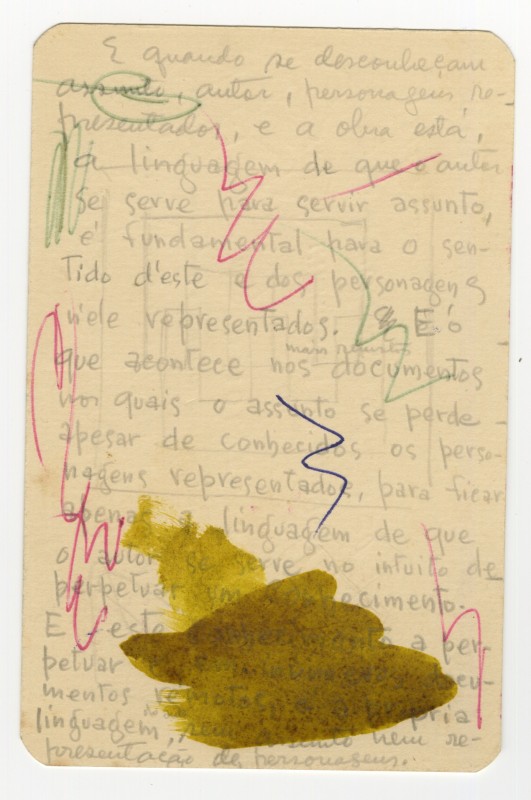 E quando se desconheçam
assunto, autor, personagens re-
presentados, e a obra está,
a linguagem de que o autor
se serve para servir assunto,
é fundamental para o sen-
tido d'este e dos personagens
n'ele representados. E é o
que acontece nos documentos
nos quais o assunto se perde
apesar de conhecidos os perso-
nagens representados, para ficar
apenas a linguagem de que
o autor se serve no intuito de
perpetuar um conhecimento.
E este conhecimento a per-
petuar
mentos remotos é a própria
linguagem, nem assunto nem re-
presentação de personagens.